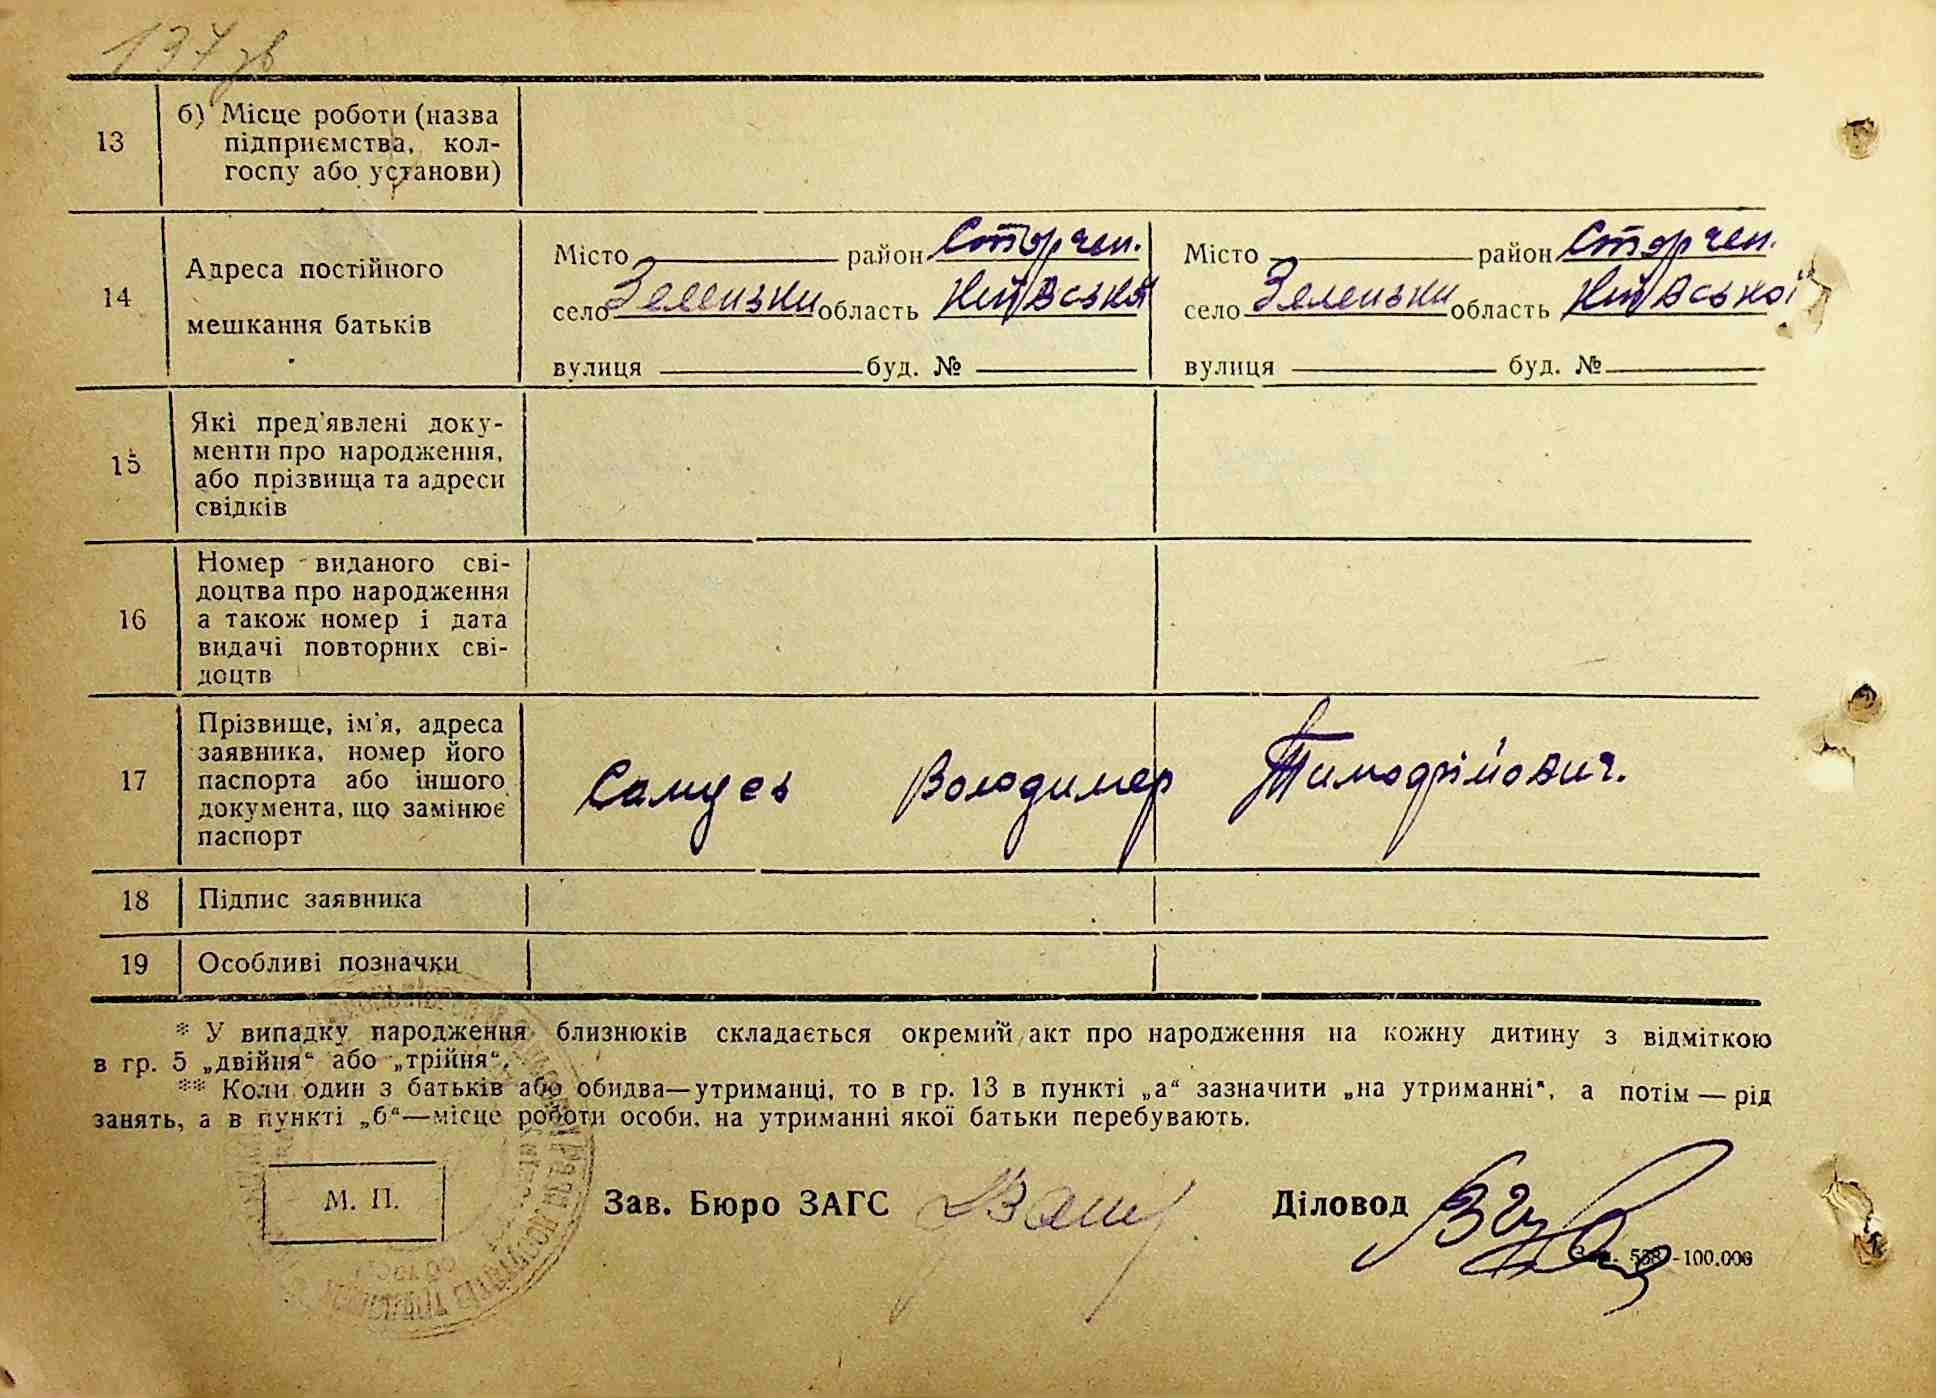 137 зв
13
б) Місце роботи (назва
підприємства, кол-
госпу або установи)
14
Адреса постійного
мешкання батьків
Місто район Сторчен.
село Зеленьки область Київська
вулиця буд. №
Місто район Сторчен.
село Зеленьки область Київської
вулиця буд. №
15
Які пред'явлені доку-
менти про народження,
або прізвища та адреси
свідків
16
Номер виданого сві-
доцтва про народження
а також номер і дата
видачі повторних сві-
доцтв
17
Прізвище, ім'я, адреса
заявника, номер його
паспорта або іншого
документа, що замінює
паспорт
Володимер Тимофійович.
18
Підпис заявника
19
Особливі позначки
* У випадку народження близнюків складається окремий акт про народження на кожну дитину з відміткою
в гр. 5 „двійня“ або „трійня“.
** Коли один з батьків або обидва—утриманці, то в гр. 13 в пункті „а“ зазначити „на утриманні“, а потім — рід
занять, а в пункті „б“—місце роботи особи, на утриманні якої батьки перебувають.
М. П.
Зав. Бюро ЗАГС
Діловод
-100.000